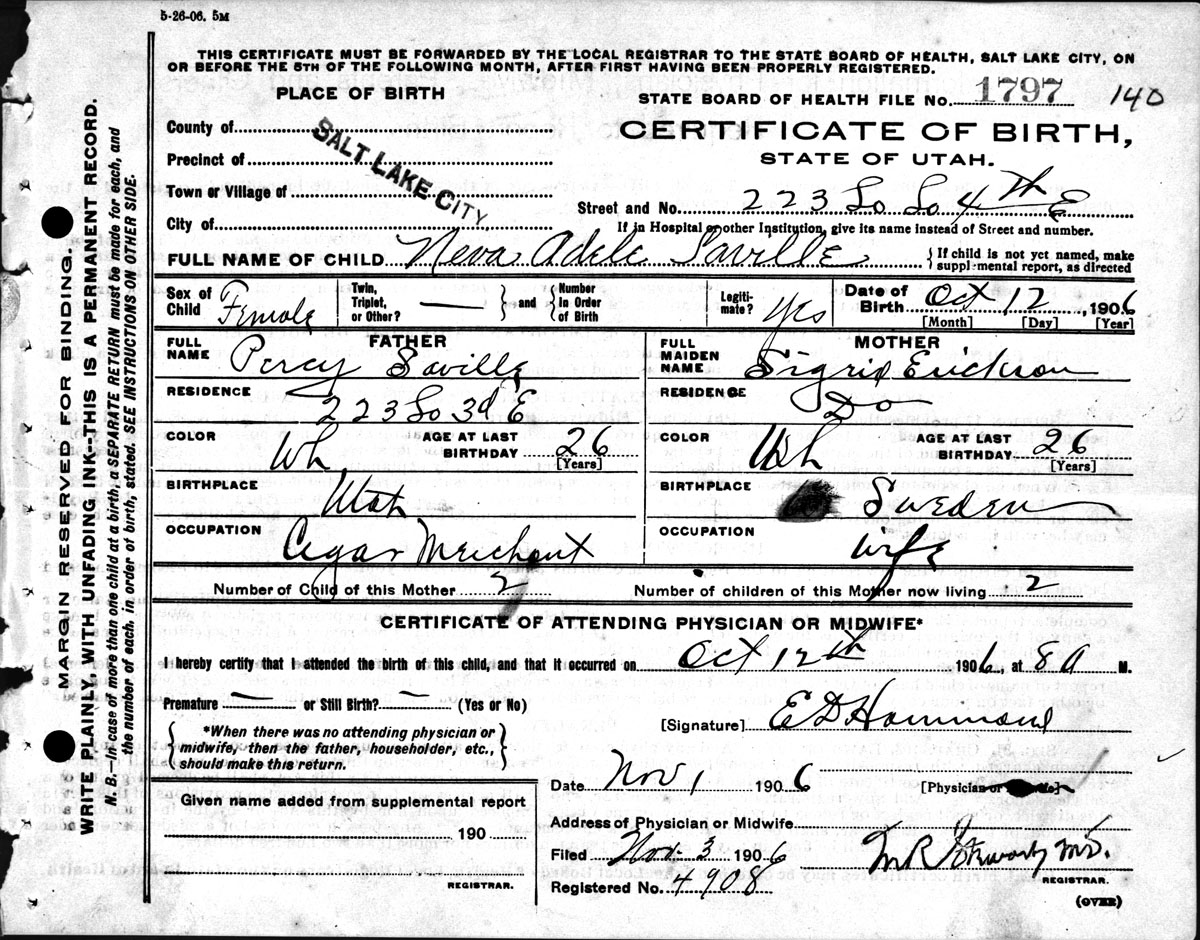 5-26-06. 5M
THIS CERTIFICATE MUST BE FORWARDED BY THE LOCAL REGISTRAR TO THE STATE BOARD OF HEALTH, SALT LAKE CITY, ON
OR BEFORE THE 5TH OF THE FOLLOWING MONTH, AFTER FIRST HAVING BEEN PROPERLY REGISTERED.
PLACE OF BIRTH
STATE BOARD OF HEALTH FILE NO. 1797 140
County of
CERTIFICATE OF BIRTH,
Precinct of
STATE OF UTAH.
SALT LAKE CITY.
Town or Village of
Street and No. 223 So So 4th E
City of
If in Hospital or other Institution, give its name instead of Street and number.
FULL NAME OF CHILD Neva Adele Saville { If child is not yet named, make
supplemental report, as directed
Sex of Child Female Twin, Triplet, or Other? — } and { Number in Order of Birth Legiti-mate? Yes Date of Birth Oct 12, 1906
[Month] [Day] [Year]
FATHER MOTHER
FULL NAME Percy Saville FULL MAIDEN NAME Sigrid Erickson
RESIDENCE 223 So 3d E RESIDENCE Do
COLOR Wh AGE AT LAST BIRTHDAY 26 [Years] COLOR Wh AGE AT LAST BIRTHDAY 26 [Years]
BIRTHPLACE Utah BIRTHPLACE Sweden
OCCUPATION Cigar Merchant OCCUPATION wife
Number of Child of this Mother 2 Number of children of this Mother now living 2
CERTIFICATE OF ATTENDING PHYSICIAN OR MIDWIFE*
I hereby certify that I attended the birth of this child, and that it occurred on Oct 12th 1906, at 8 a M.
Premature — or Still Birth? — (Yes or No)
[Signature] E D Hammond
{ *When there was no attending physician or
midwife, then the father, householder, etc.,
should make this return. }
Date Nov 1 1906 [Physician or
Given name added from supplemental report
190
REGISTRAR.
Address of Physician or Midwife
Filed Nov. 3 1906 M R Stewart M.D.
REGISTRAR.
Registered No. 4908
(OVER)
MARGIN RESERVED FOR BINDING.
WRITE PLAINLY, WITH UNFADING INK--THIS IS A PERMANENT RECORD.
N. B.—In case of more than one child at a birth, a SEPARATE RETURN must be made for each, and
the number of each, in order of birth, stated. SEE INSTRUCTIONS ON OTHER SIDE.